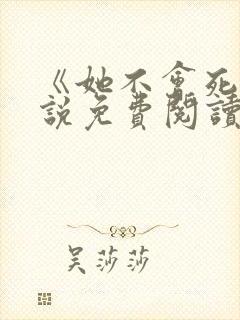 《她不會死
說免費閱讀
吳莎莎